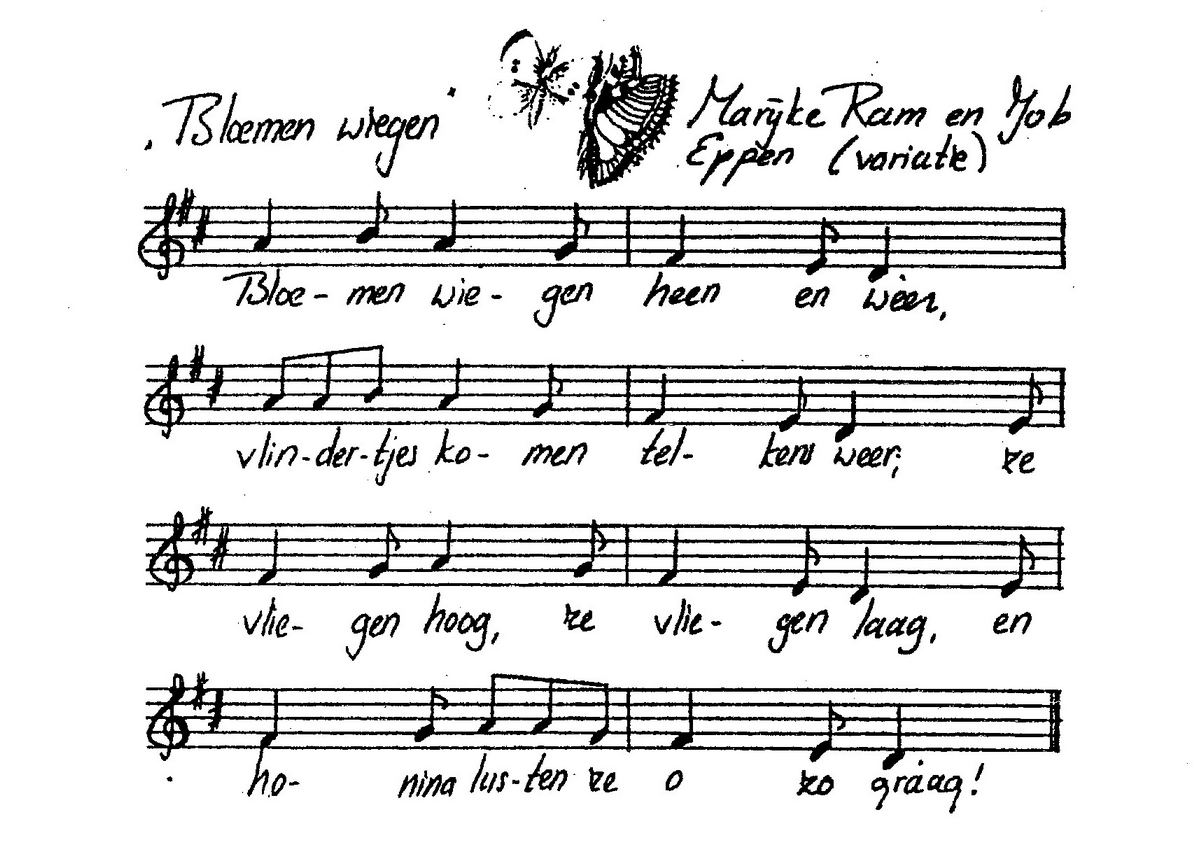 "Bloemen wiegen"
Marijke Ram en Job
Eppen (variatie)
Bloe- men wie- gen heen en weer,
vlin-der-tjes ko- men tel- kens weer; ze
vlie- gen hoog, ze vlie- gen laag, en
ho- ning lus-ten ze o zo graag!